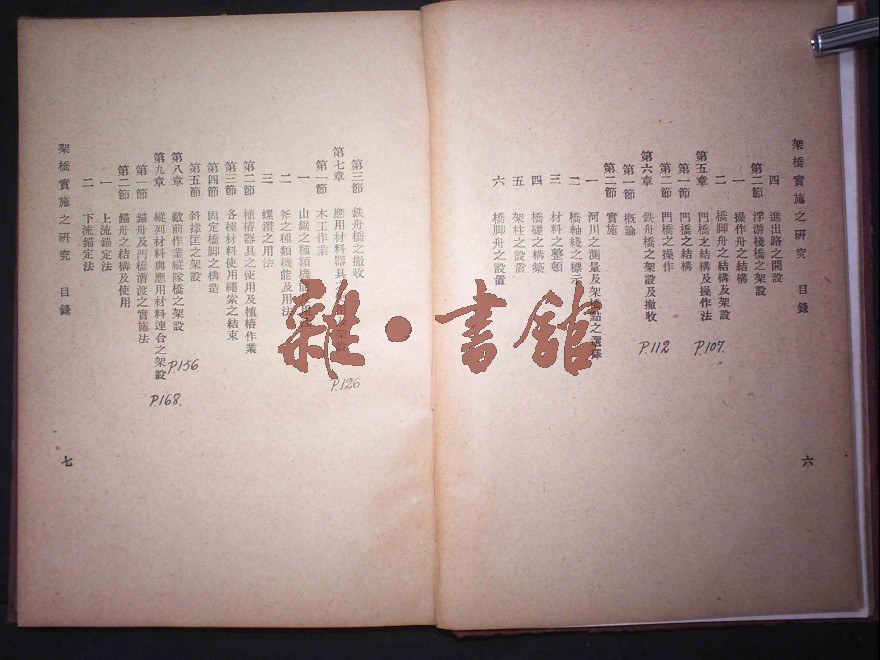 架橋實施之研究 目錄
四 進出路之開設
第二節 浮游棧橋之架設
一 操作舟之結構
二 橋脚舟之結構及架設
第五章 門橋之結構及操作法
P.107.
第一節 門橋之結構
第二節 門橋之操作
第六章 鉄舟橋之架設及撤收
P.112
第一節 概論
第二節 實施
一 河川之測量及架橋點之選擇
二 橋軸綫之標示
三 材料之整頓
四 橋礎之構築
五 架柱之設置
六 橋脚舟之設置
六
第三節 鉄舟橋之撤收
第七章 應用材料器具
P.126
第一節 木工作業
一 山鋸之種類機能
二 斧之種類機能及用法
三 螺鑽之用法
第二節 植樁器具之使用及植樁作業
第三節 各種材料使用繩索之結束
第四節 固定橋脚之構造
第五節 斜撐匡之架設
第八章 敵前作業縱隊橋之架設
P.156
第九章 縱列材料與應用材料連合之架設
P.168.
第一節 錨舟及門橋漕渡之實施法
第二節 錨舟之結構及使用
一 上流錨定法
二 下流錨定法
架橋實施之研究 目錄
七
雜·書館